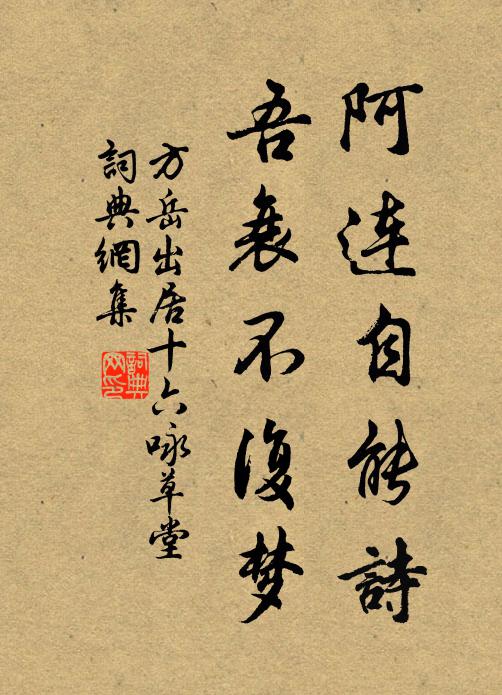 阿连自能詩
吾衰不復梦
方岳出居十六咏草堂
詞典網集
詞典网印